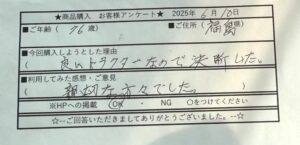 ★商品購入 お客様アンケート★ 2025年6月10日
■ご年齢( 76歳 ) ■ご住所(福島県)
■今回購入しようとした理由
( 良いトラクターなので決断した。 )
■利用してみた感想・ご意見
( 親切な方々でした。 )
※HPへの掲載 OK ・ NG ○をつけてください
☆--ご回答いただきましてありがとうございました。--☆